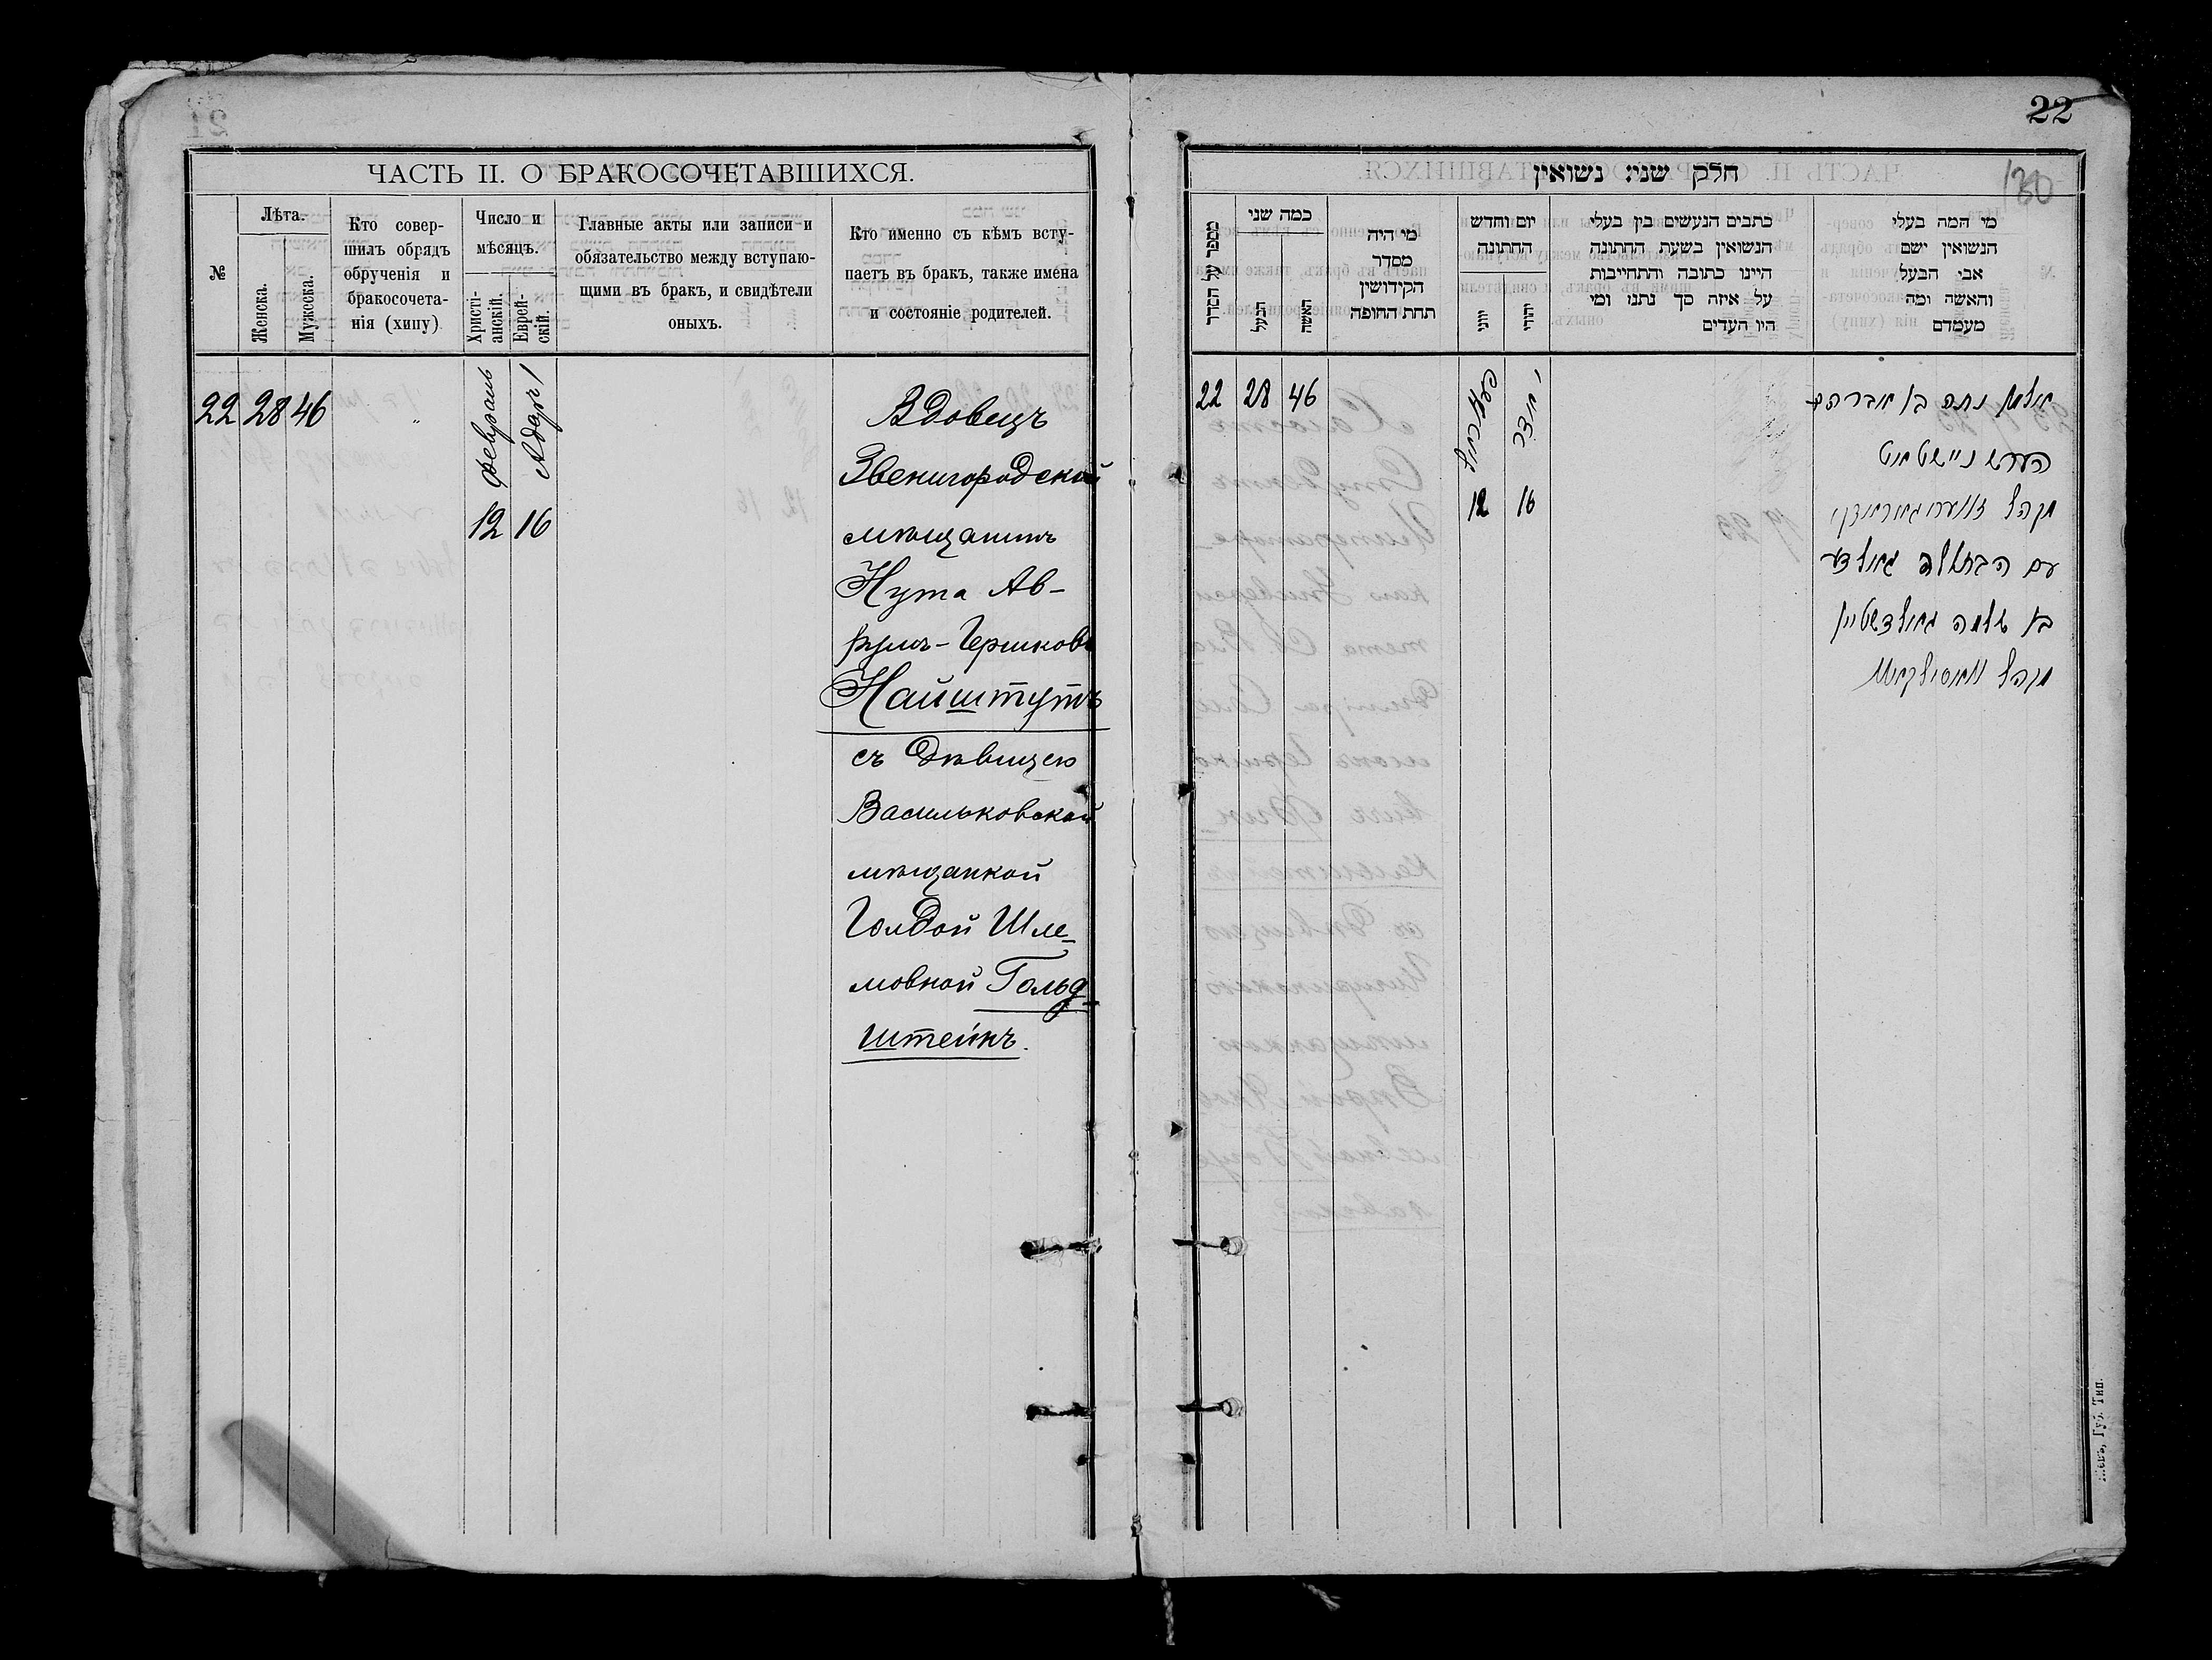 22
ЧАСТЬ II. О БРАКОСОЧЕТАВШИХСЯ.
№
Лѣта.
Женска.
Мужеска.
Кто совер-
шилъ обрядъ
обрученія и
бракосочета-
нія (хипу)
Число и
мѣсяцъ.
Христі-
анскій.
Еврей-
скій.
Главные акты или записи и
обязательство между вступаю-
щими въ бракъ, и свидѣтели
оныхъ.
Кто именно съ кѣмъ всту-
паетъ въ бракъ, также имена
и состояніе родителей.
22 28 46
Февраль
Адаръ 1
12 16
Вдовецъ
Звенигородской
мѣщанинъ
Нута Ав-
румъ-Гершковъ
Найштутъ
съ Дѣвицею
Васильковской
мѣщанкой
Голдой Шле-
мовной Гольд-
штейнъ.
חלק שני: נשואין
130
מספר על הסדר
כמה שני
הבעל
האשה
מי היה
מסדר
הקידושין
תחת החופה
יום וחדש
החתונה
יוני
יהודי
כתבים הנעשים בין בעלי
הנשואין בשעת החתונה
היינו כתובה והתחייבות
על איזה סך נתנו ומי
היו העדים
מי המה בעלי
הנשואין ושם
אבי הבעל
והאשה ומה
מעמדם
22 28 46
פעברואל
אדר
12 16
אלמן נתה בן אברהם
הערש ניישטאט
מקהל זווענוגאראדקי
עם הבתולה גאלדע
בת שלמה גאלדשטיין
מקהל וואסילקאוו
Кіевъ, Губ. Тип.